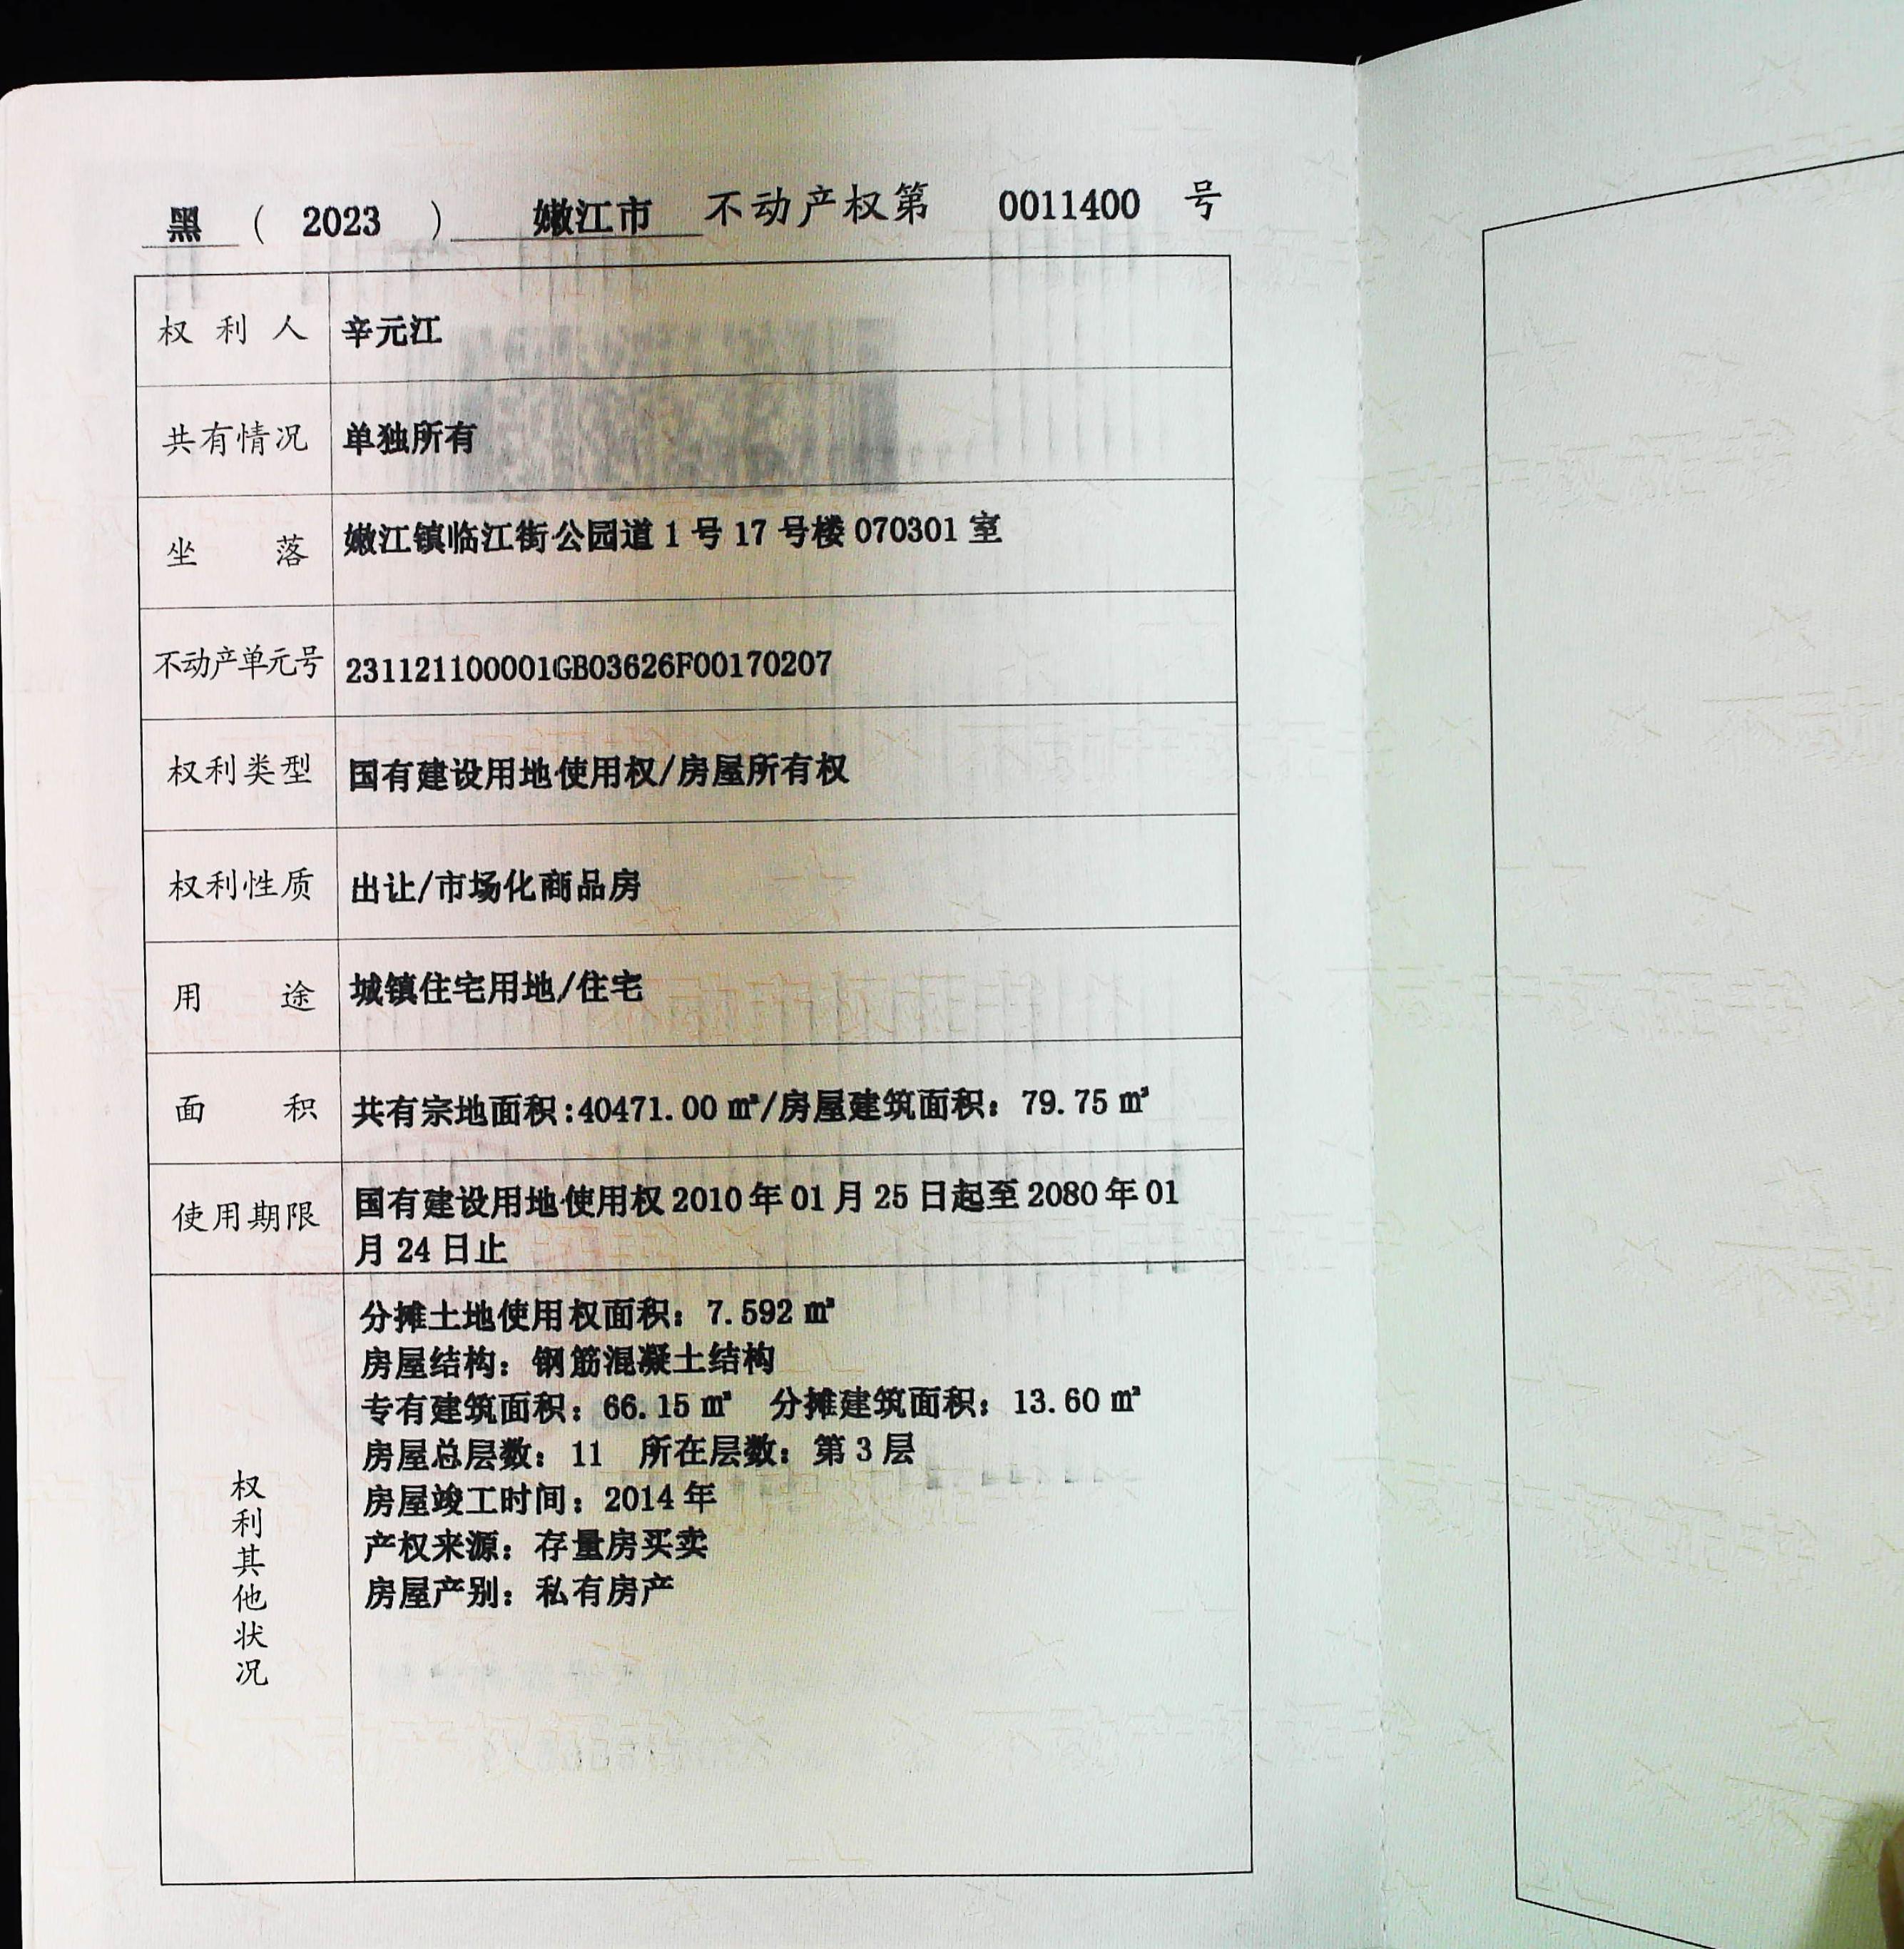 黑 ( 2023 ) 嫩江市 不动产权第 0011400 号
权利人 辛元江
共有情况 单独所有
坐落 嫩江镇临江街公园道1号17号楼070301室
不动产单元号 231121100001GB03626F00170207
权利类型 国有建设用地使用权/房屋所有权
权利性质 出让/市场化商品房
用途 城镇住宅用地/住宅
面积 共有宗地面积:40471.00㎡/房屋建筑面积：79.75㎡
使用期限 国有建设用地使用权2010年01月25日起至2080年01
月24日止
权利其他状况
分摊土地使用权面积：7.592㎡
房屋结构：钢筋混凝土结构
专有建筑面积：66.15㎡ 分摊建筑面积：13.60㎡
房屋总层数：11 所在层数：第3层
房屋竣工时间：2014年
产权来源：存量房买卖
房屋产别：私有房产